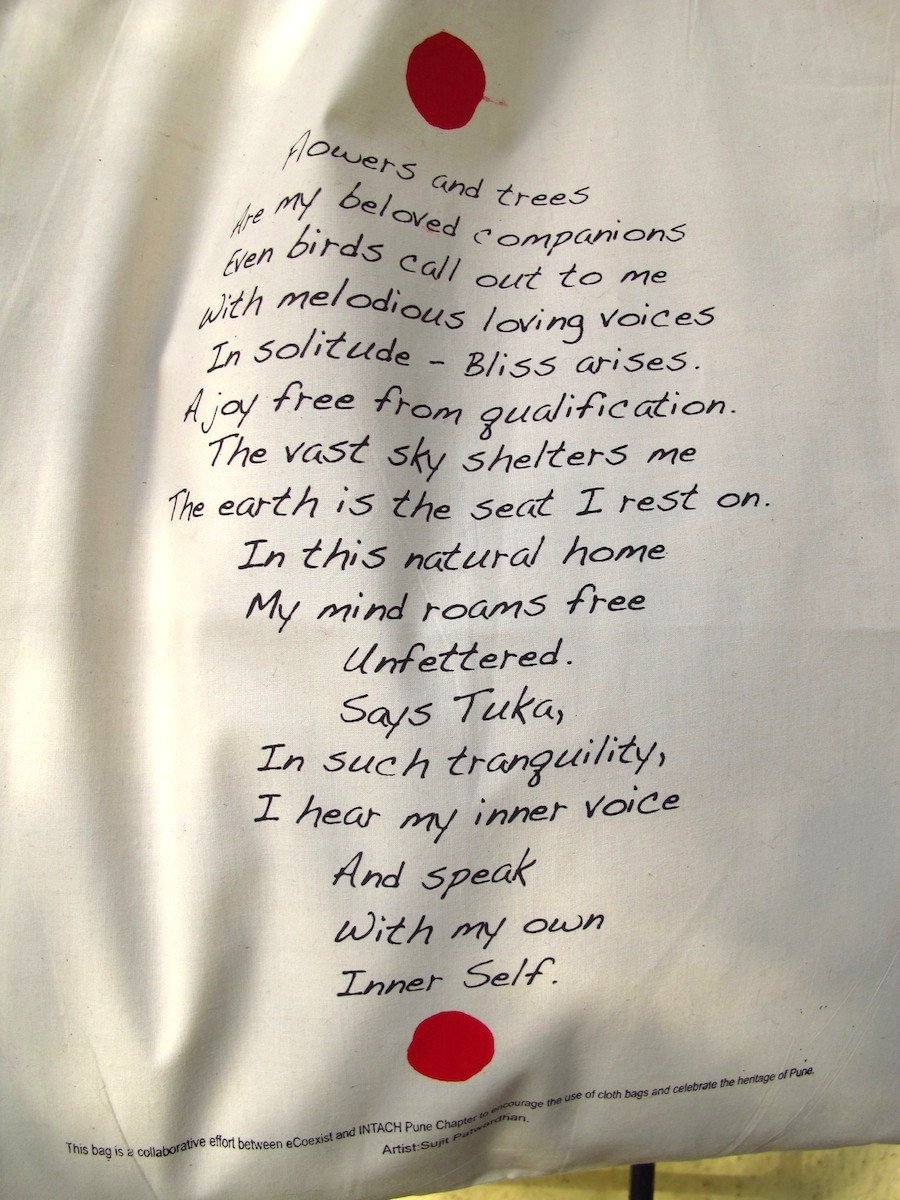 flowers and trees
Are my beloved companions
Even birds call out to me
With melodious loving voices
In solitude - Bliss arises.
A joy free from qualification.
The vast sky shelters me
The earth is the seat I rest on.
In this natural home
My mind roams free
Unfettered.
Says Tuka,
In such tranquility,
I hear my inner voice
And speak
With my own
Inner Self.
This bag is a collaborative effort between eCoexist and INTACH Pune Chapter to encourage the use of cloth bags and celebrate the heritage of Pune.
Artist:Sujit Patwardhan.